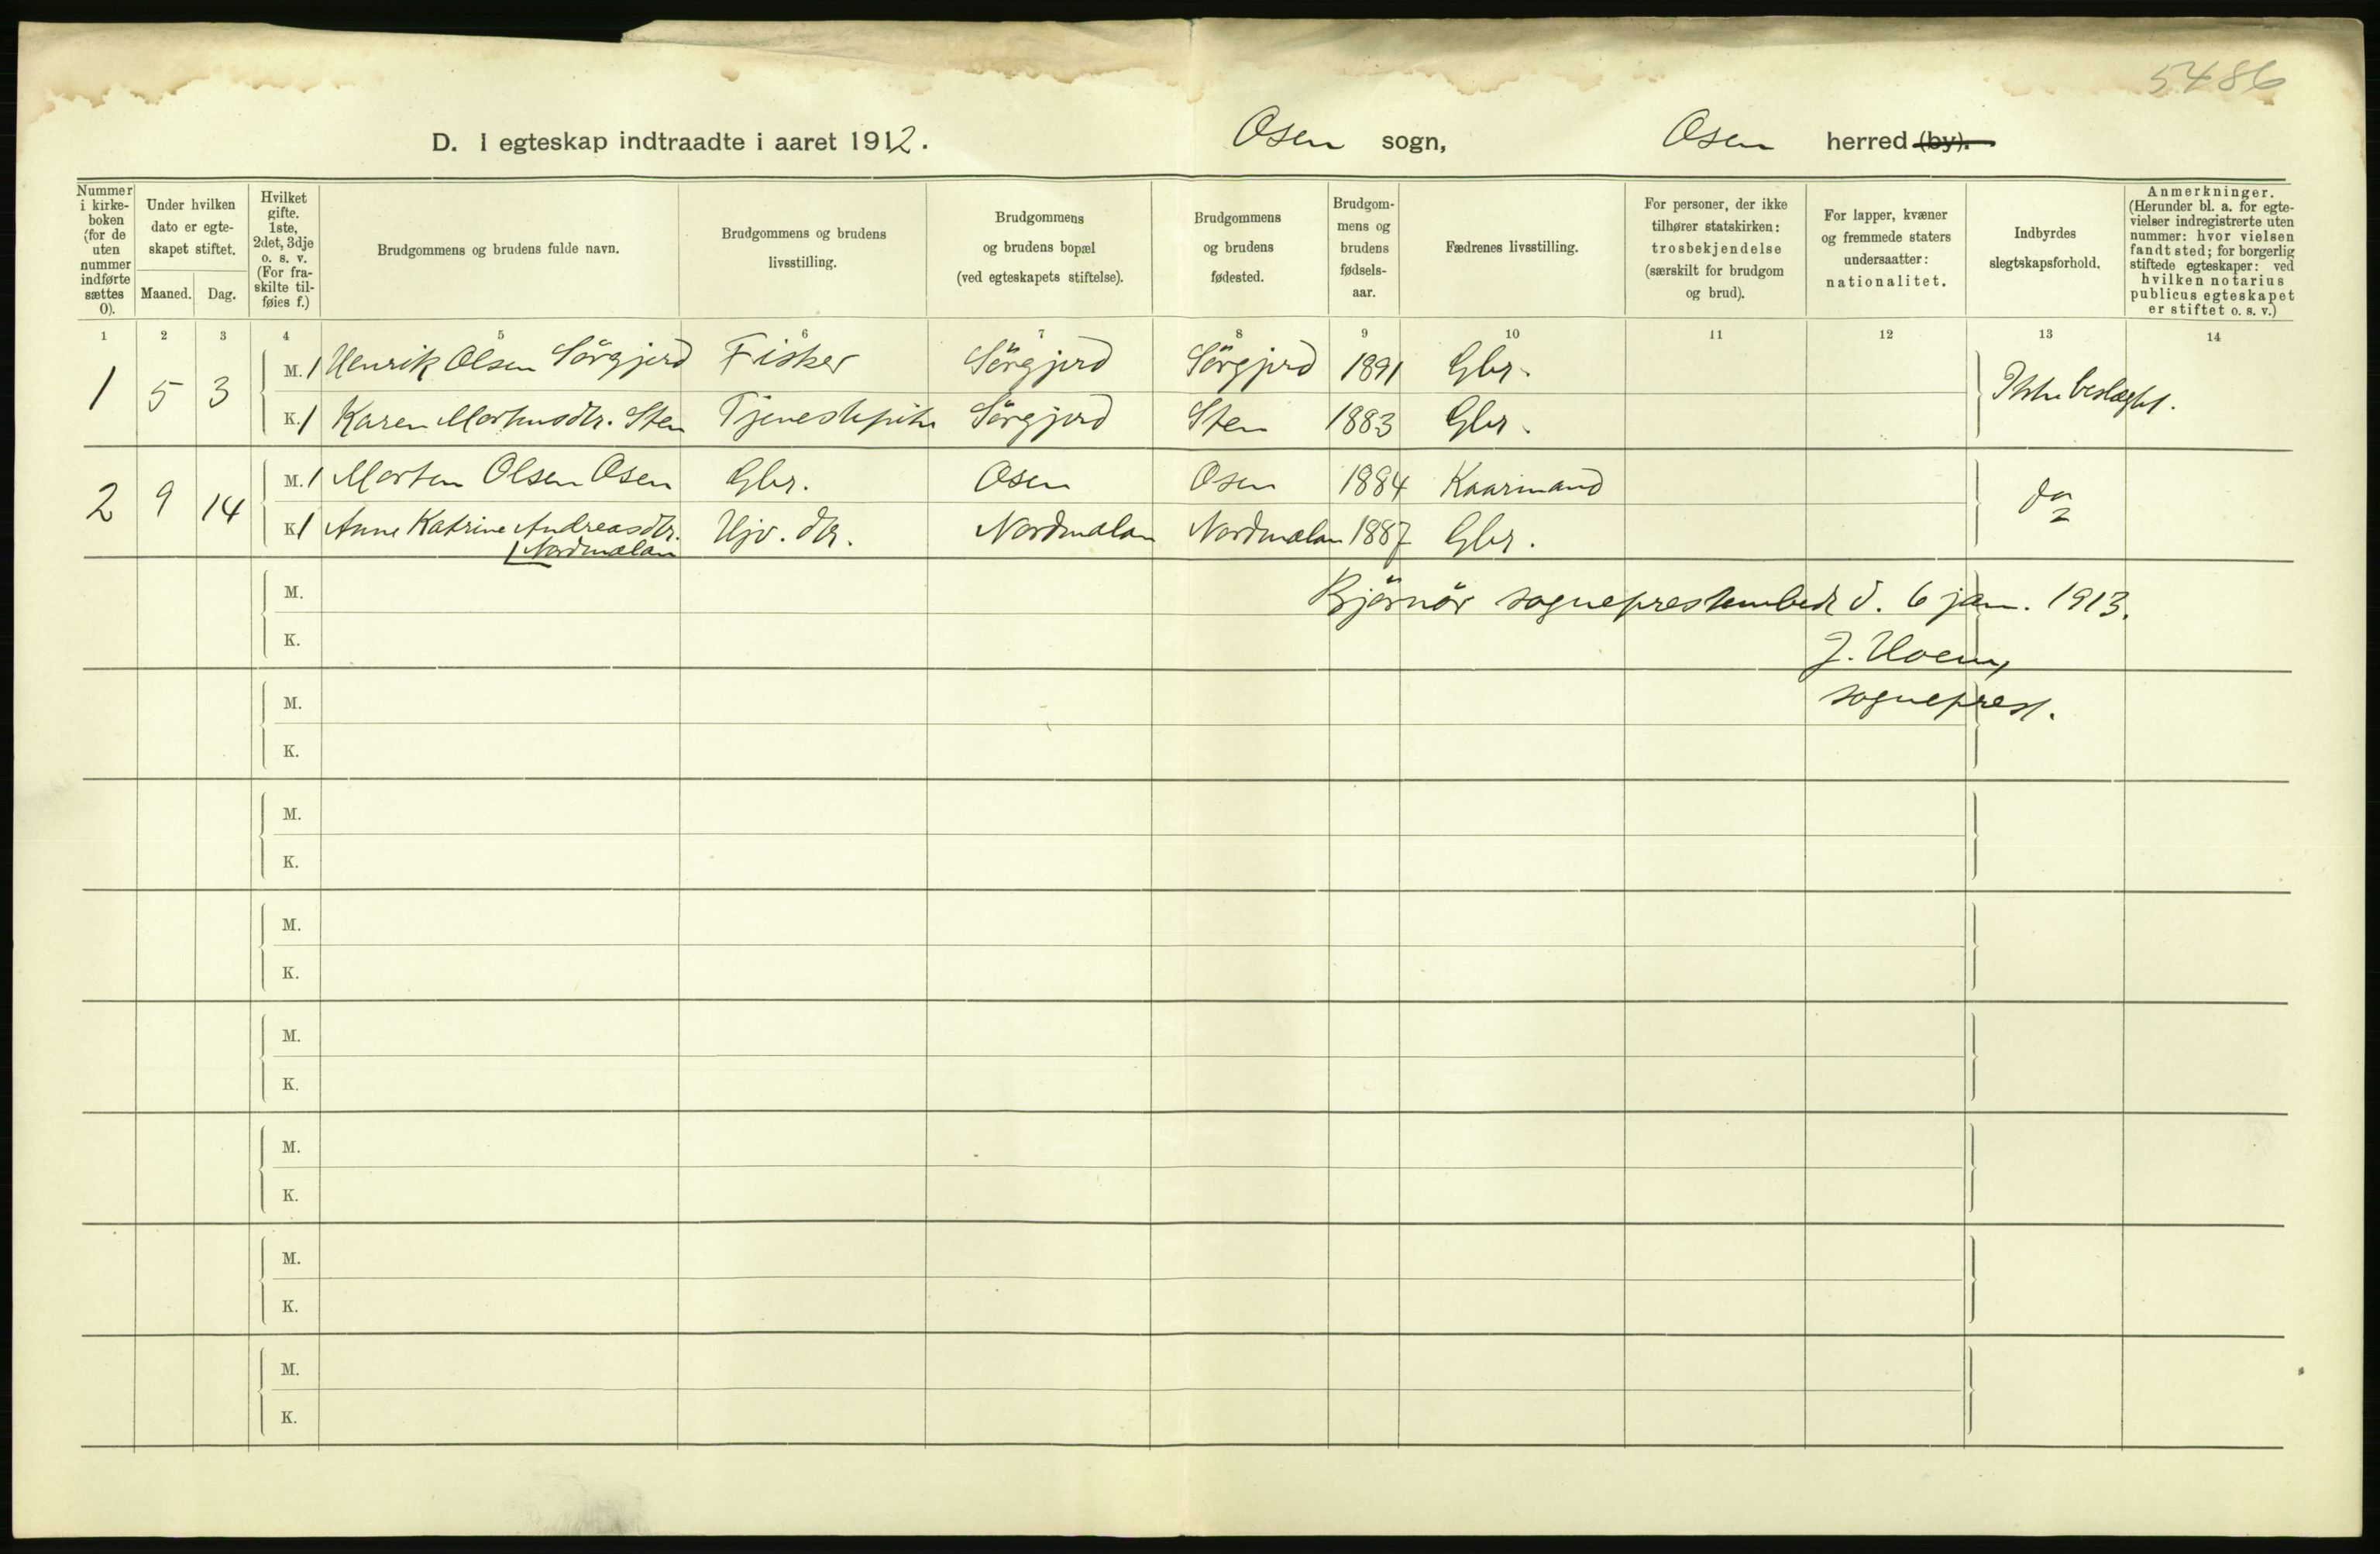 5486
D. I egteskap indtraadte i aaret 1912. Osen sogn, Osen herred (by).
Nummer i kirkeboken (for de uten nummer indførte sættes 0).
Under hvilken dato er egteskapet stiftet.
Maaned. Dag.
Hvilket gifte. 1ste, 2det, 3dje o. s. v. (For fraskilte tilføies f.)
Brudgommens og brudens fulde navn.
Brudgommens og brudens livsstilling.
Brudgommens og brudens bopæl (ved egteskapets stiftelse).
Brudgommens og brudens fødested.
Brudgommens og brudens fødselsaar.
Fædrenes livsstilling.
For personer, der ikke tilhører statskirken: trosbekjendelse (særskilt for brudgom og brud).
For lapper, kvæner og fremmede staters undersaatter: nationalitet.
Indbyrdes slegtskapsforhold.
Anmerkninger. (Herunder bl. a. for egtevielser indregistrerte uten nummer: hvor vielsen fandt sted; for borgerlig stiftede egteskaper: ved hvilken notarius publicus egteskapet er stiftet o. s. v.)
1 2 3 4 5 6 7 8 9 10 11 12 13 14
1 5 3 M. 1 Henrik Olsen Sörgjerd Fisker Sörgjerd Sörgjerd 1891 Gbr. Ikke beslægtet.
K. 1 Karen Mortensdtr. Sten Tjenestepike Sörgjerd Sten 1883 Gbr.
2 9 14 M. 1 Morten Olsen Osen Gbr. Osen Osen 1884 Kaarmand do
K. 1 Anne Katrine Andreasdtr. Hjv. dtr. Nordmelan Nordmelan 1887 Gbr.
Nordmelan
M. Björnör sogneprestembede d. 6 jan. 1913.
K. J. Hoem,
M. sogneprest.
K.
M.
K.
M.
K.
M.
K.
M.
K.
M.
K.
M.
K.